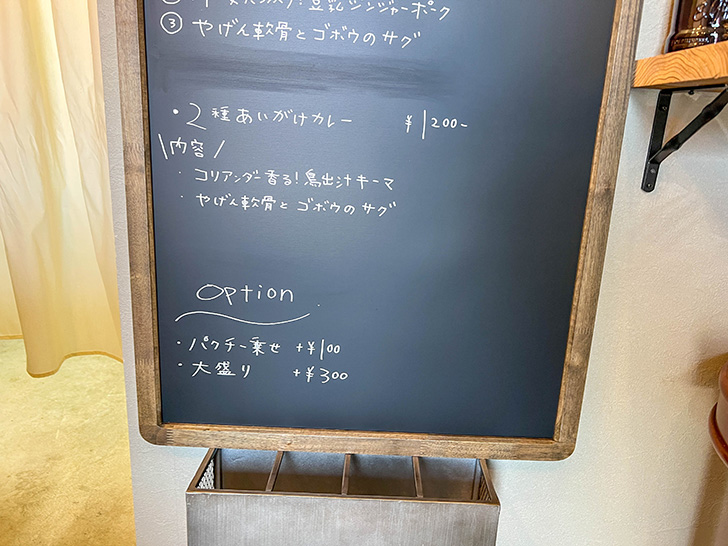 豆乳ジンジャーポーク
③ やげん軟骨とゴボウのサグ
・2種あいがけカレー ¥1200-
\内容/
・コリアンダー香る!鳥出汁キーマ
・やげん軟骨とゴボウのサグ
Option
・パクチー乗せ +¥100
・大盛り +¥300